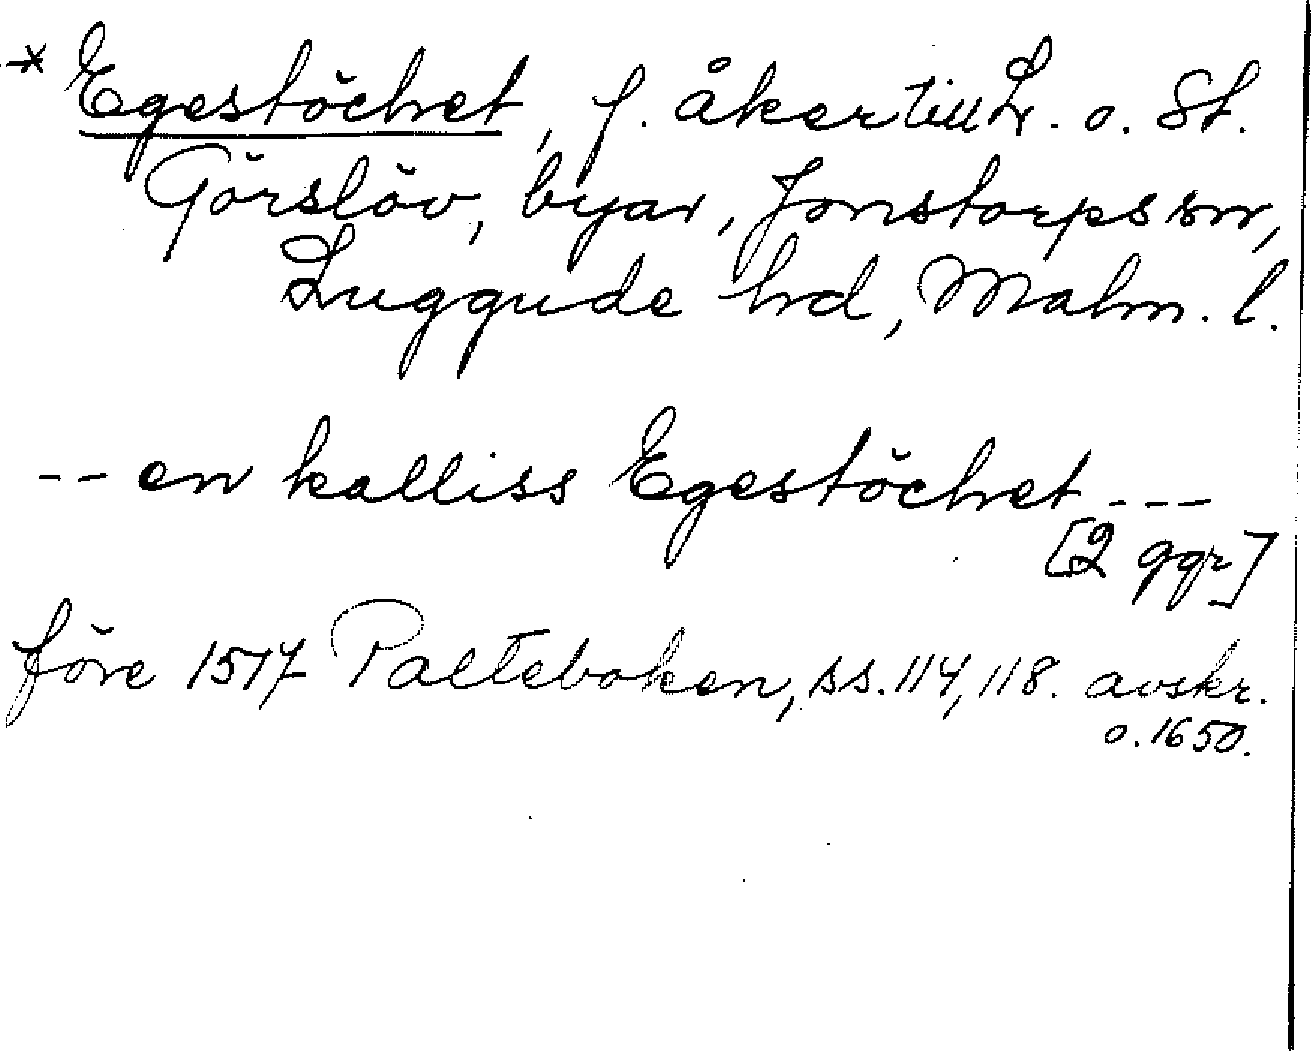 * Egestöchet, f. åker till L. o. St.
Görslöv, byar, Jonstorps sn,
Luggude hd, Malm. l.
-- en kalliss Egestöchet ---
[2 ggr]
före 1517 Palteboken, ss. 114, 118. avskr.
o. 1650.